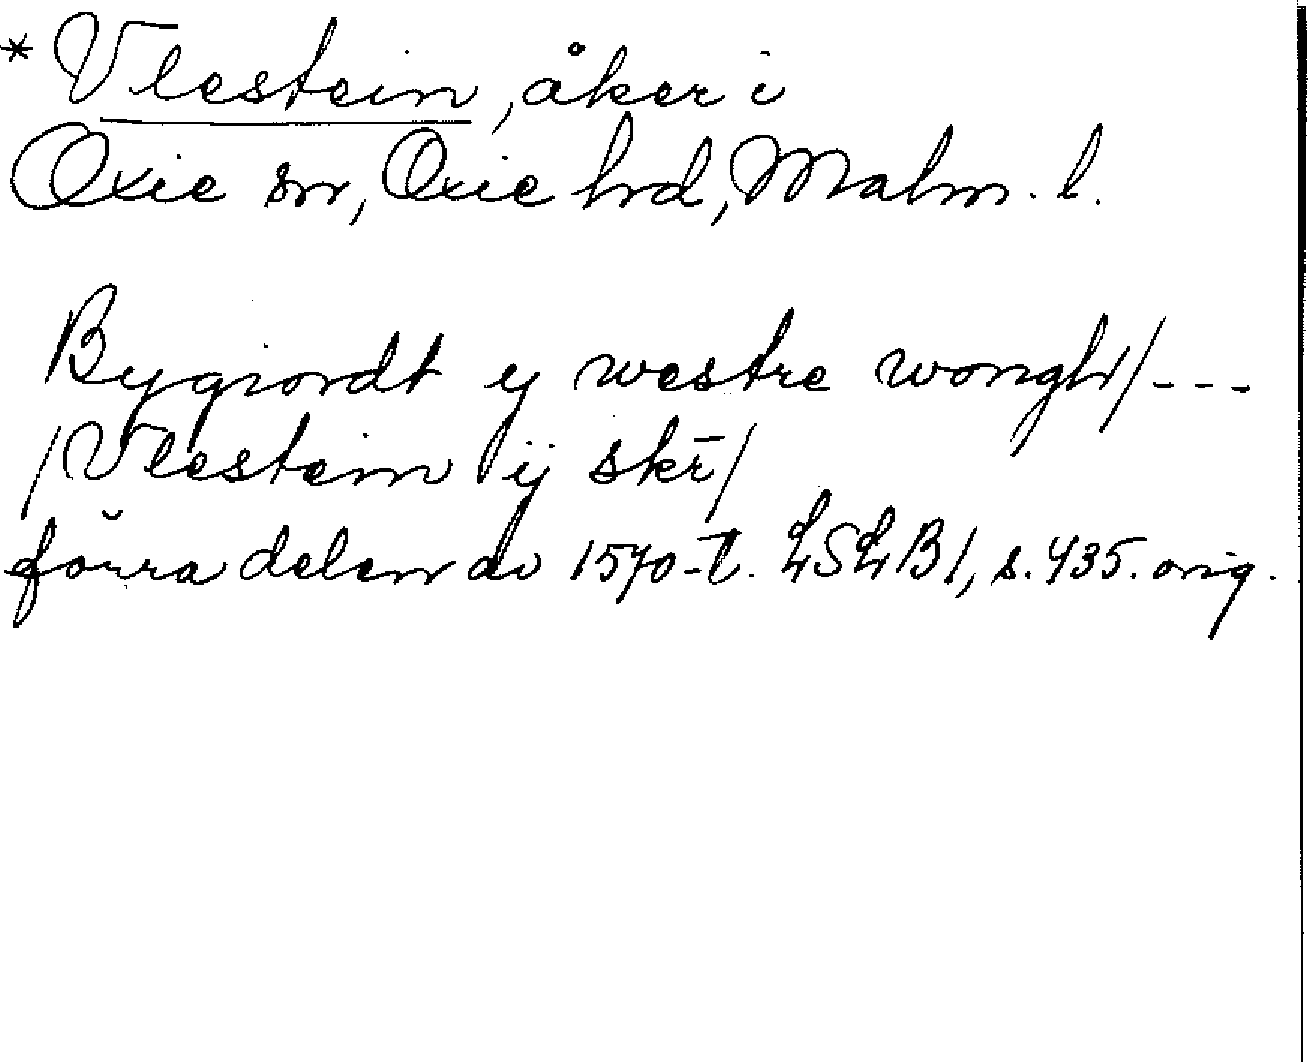 * Vlestein, åker i
Oxie sn, Oxie hd, Malm. l.
Bygiordt y westre wongh/---
/Vlestein ij skr̄/
förra delen av 1570-t. LSLB1, s. 435. orig.